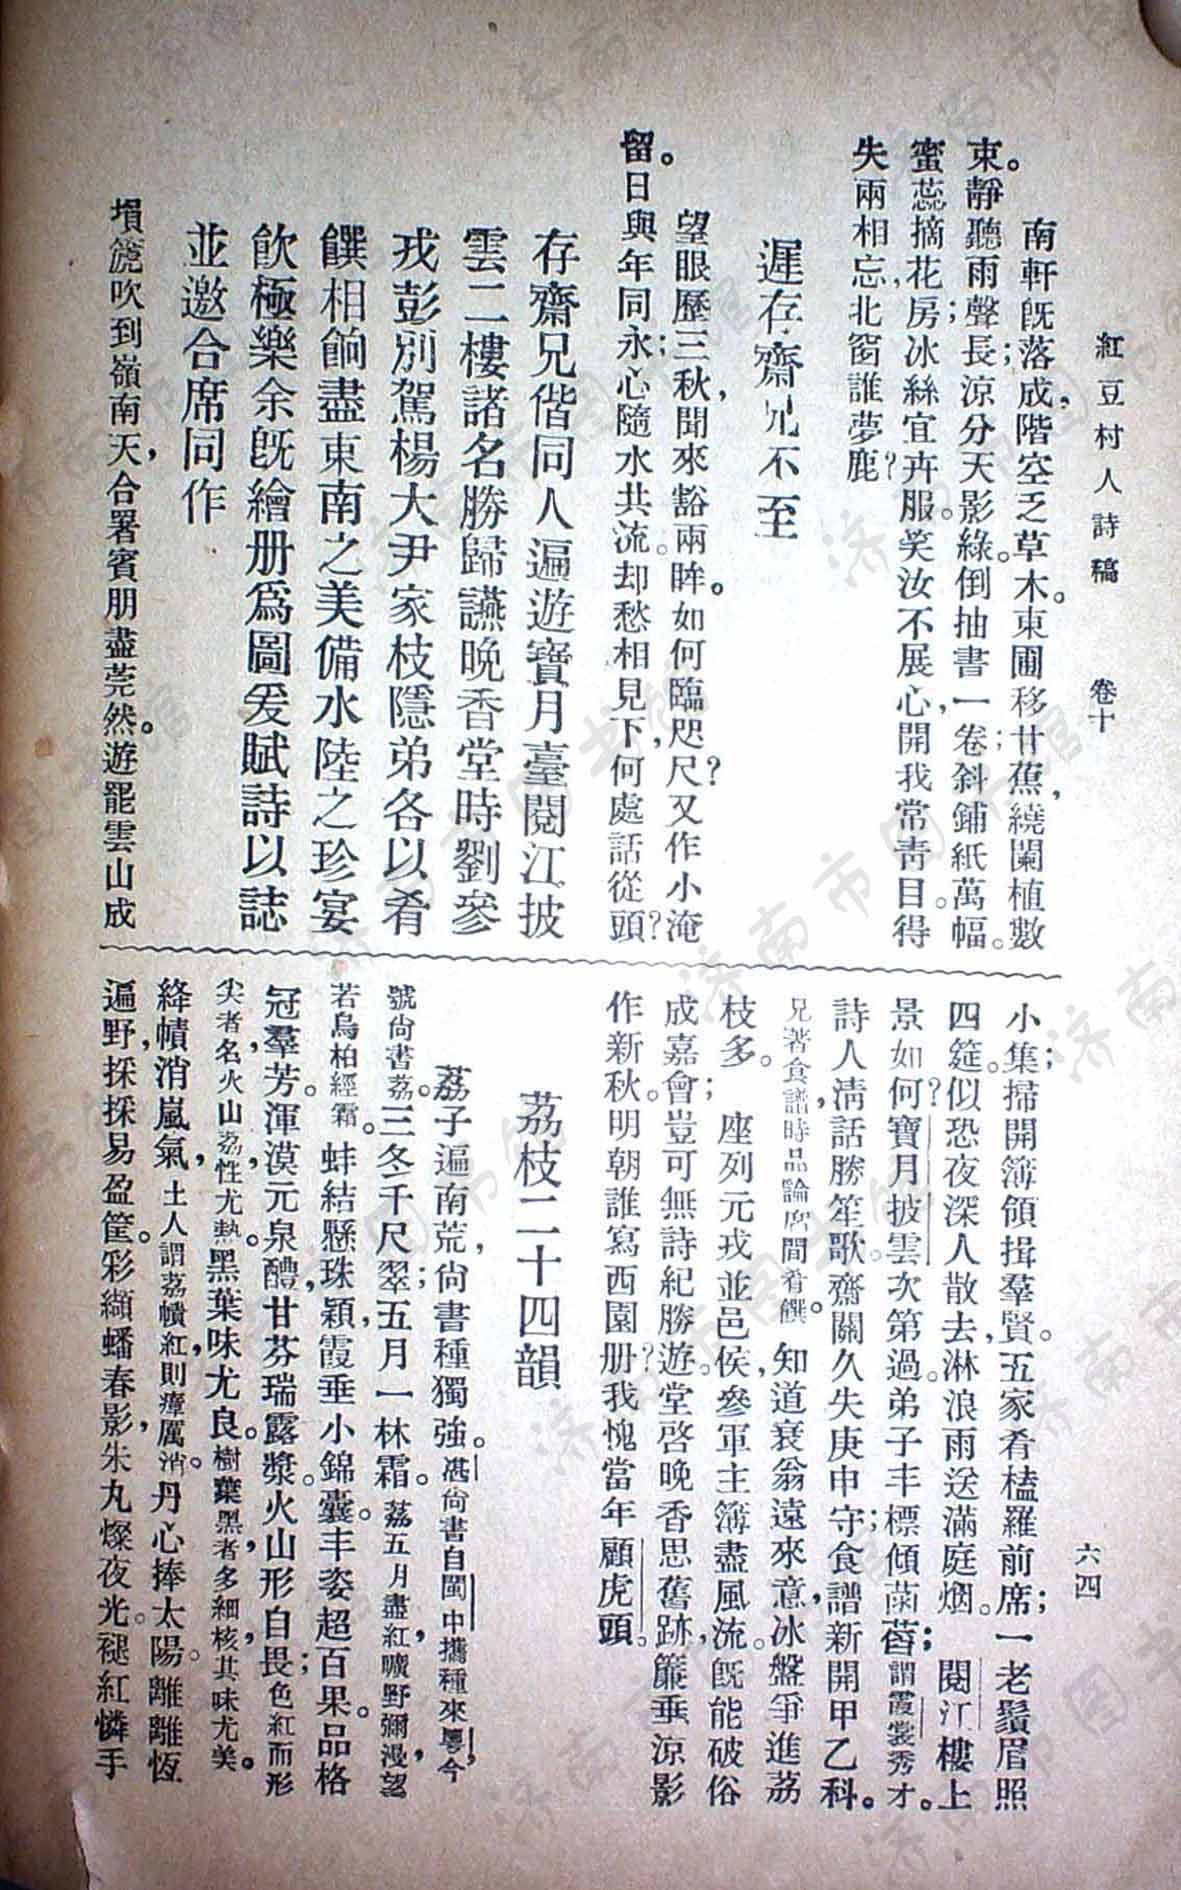 紅豆村人詩稿　卷十　六四
南軒旣落成，階空乏草木。東圃移甘蕉，繞闌植數
束。靜聽雨聲長；涼分天影綠。倒抽書一卷；斜鋪紙萬幅。
蜜蕊摘花房；冰絲宜卉服。笑汝不展心，開我常青目。得
失兩相忘，北窗誰夢鹿？
遲存齋兄不至
望眼歷三秋，聞來豁兩眸。如何臨咫尺？又作小淹
留。日與年同永；心隨水共流。却愁相見下，何處話從頭？
存齋兄偕同人遍遊寶月臺閱江披
雲二樓諸名勝歸讌晚香堂時劉參
戎彭別駕楊大尹家枝隱弟各以肴
饌相餉盡東南之美備水陸之珍宴
飲極樂余旣繪册爲圖爰賦詩以誌
並邀合席同作
塤篪吹到嶺南天，合署賓朋盡莞然。遊罷雲山成
小集；掃開簿領揖羣賢。五家肴榼羅前席；一老鬚眉照
四筵。似恐夜深人散去，淋浪雨送滿庭烟。　閱江樓上
景如何？寶月披雲次第過。弟子丰標傾菡萏；謂霞裳秀才。
詩人淸話勝笙歌。齋關久失庚申守；食譜新開甲乙科。
兄著食譜時品論席間肴饌。知道衰翁遠來意，冰盤爭進荔
枝多。　座列元戎並邑侯；參軍主簿盡風流。旣能破俗
成嘉會，豈可無詩紀勝遊。堂啓晚香思舊跡，簾垂涼影
作新秋。明朝誰寫西園册？我愧當年顧虎頭。
荔枝二十四韻
荔子遍南荒，尙書種獨強。湛尙書自閩中攜種來粵，今
號尙書荔。三冬千尺翠；五月一林霜。荔五月盡紅，曠野彌漫，望
若烏柏經霜。蚌結懸珠穎，霞垂小錦囊。丰姿超百果，品格
冠羣芳。渾漠元泉醴，甘芬瑞露漿。火山形自畏；色紅而形
尖者，名火山荔，性尤熱。黑葉味尤良。樹葉黑者，多細核，其味尤美。
絳幘消嵐氣，土人謂荔幘紅，則瘴厲消。丹心捧太陽。離離恆
遍野，採採易盈筐。彩纈蟠春影，朱丸燦夜光。褪紅憐手